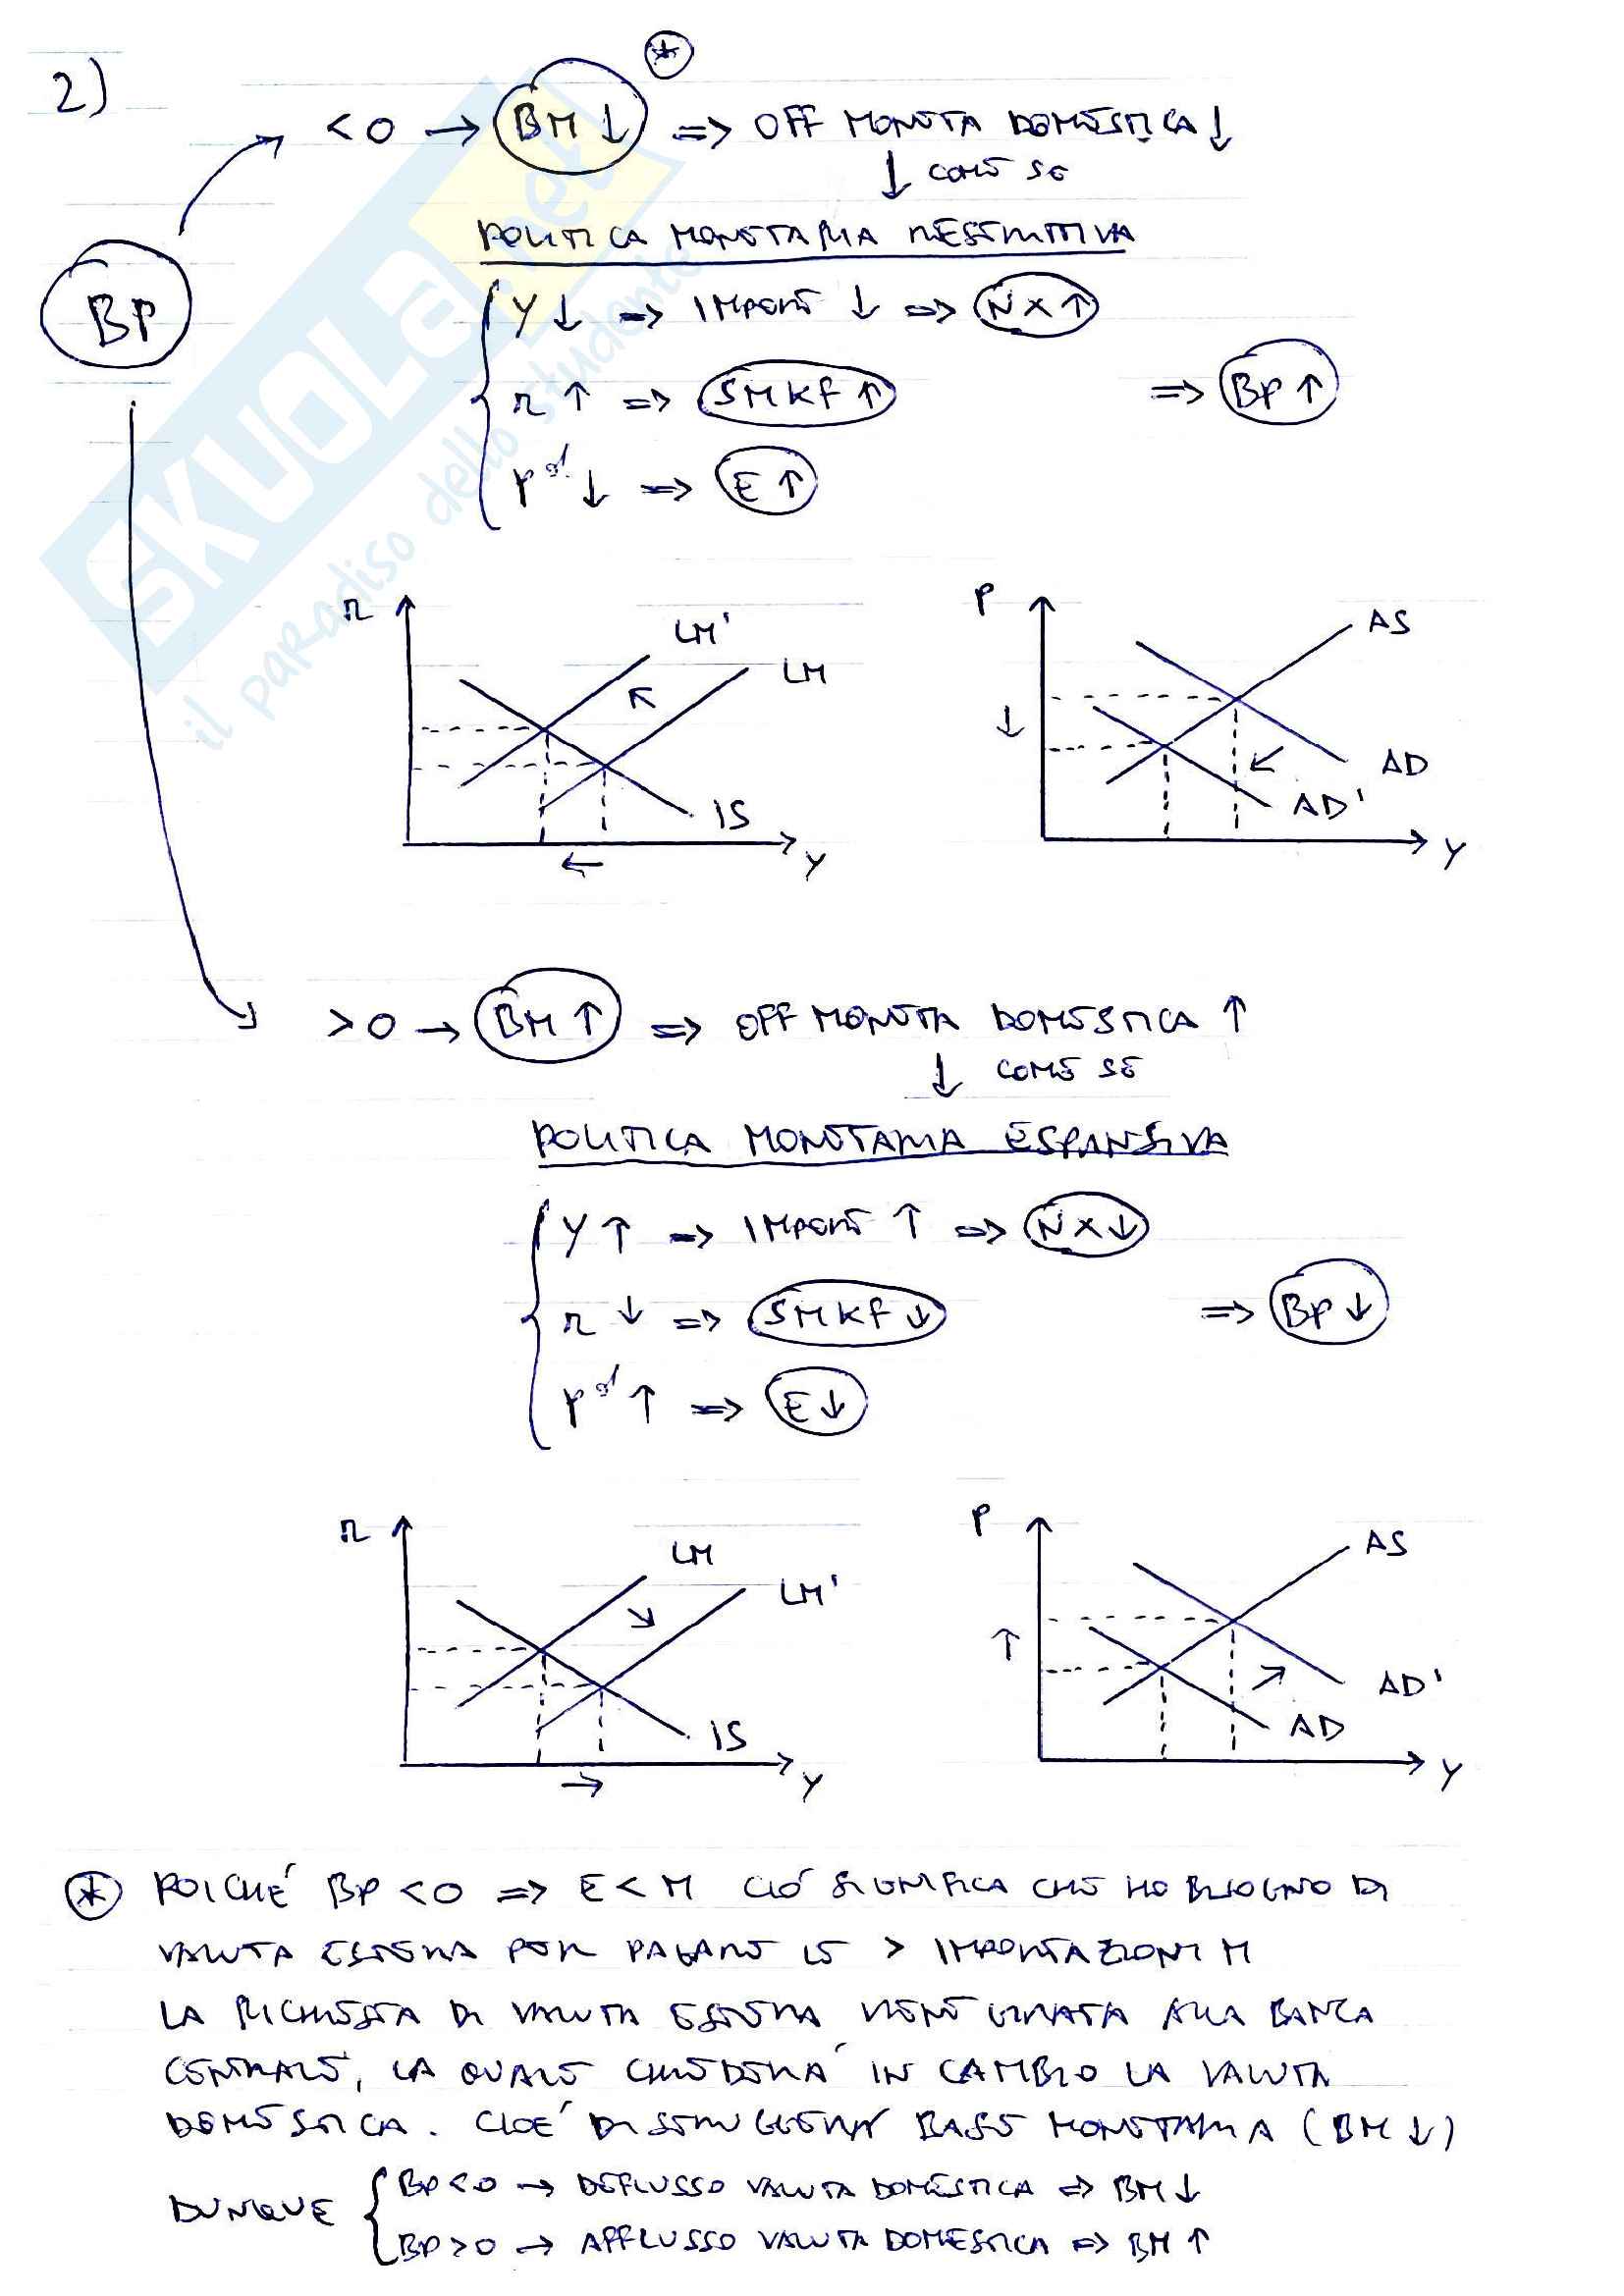 2)
< 0 → BM ↓ * => OFF MONETA DOMESTICA ↓
↓ COME SE
POLITICA MONETARIA RESTRITTIVA
BP
Y ↓ => IMPORT ↓ => NX ↑
r ↑ => SMKF ↑ => BP ↑
P ↓ => E ↑
r
LM'
LM
IS
Y
P
AS
AD
AD'
Y
> 0 → BM ↑ => OFF MONETA DOMESTICA ↑
↓ COME SE
POLITICA MONETARIA ESPANSIVA
Y ↑ => IMPORT ↑ => NX ↓
r ↓ => SMKF ↓ => BP ↓
P ↑ => E ↓
r
LM
LM'
IS
Y
P
AS
AD'
AD
Y
* POICHÉ BP < 0 => E < M CIÓ SIGNIFICA CHE HO BISOGNO DI
VALUTA ESTERA PER PAGARE LE > IMPORTAZIONI M
LA RICHIESTA DI VALUTA ESTERA VIENE GIRATA ALLA BANCA
CENTRALE, LA QUALE CHIEDERÁ IN CAMBIO LA VALUTA
DOMESTICA. CIOÉ DISTRUGGERÁ BASE MONETARIA (BM ↓)
DUNQUE { BP < 0 → DEFLUSSO VALUTA DOMESTICA => BM ↓
BP > 0 → AFFLUSSO VALUTA DOMESTICA => BM ↑
SKUOLA.net
il paradiso dello studente